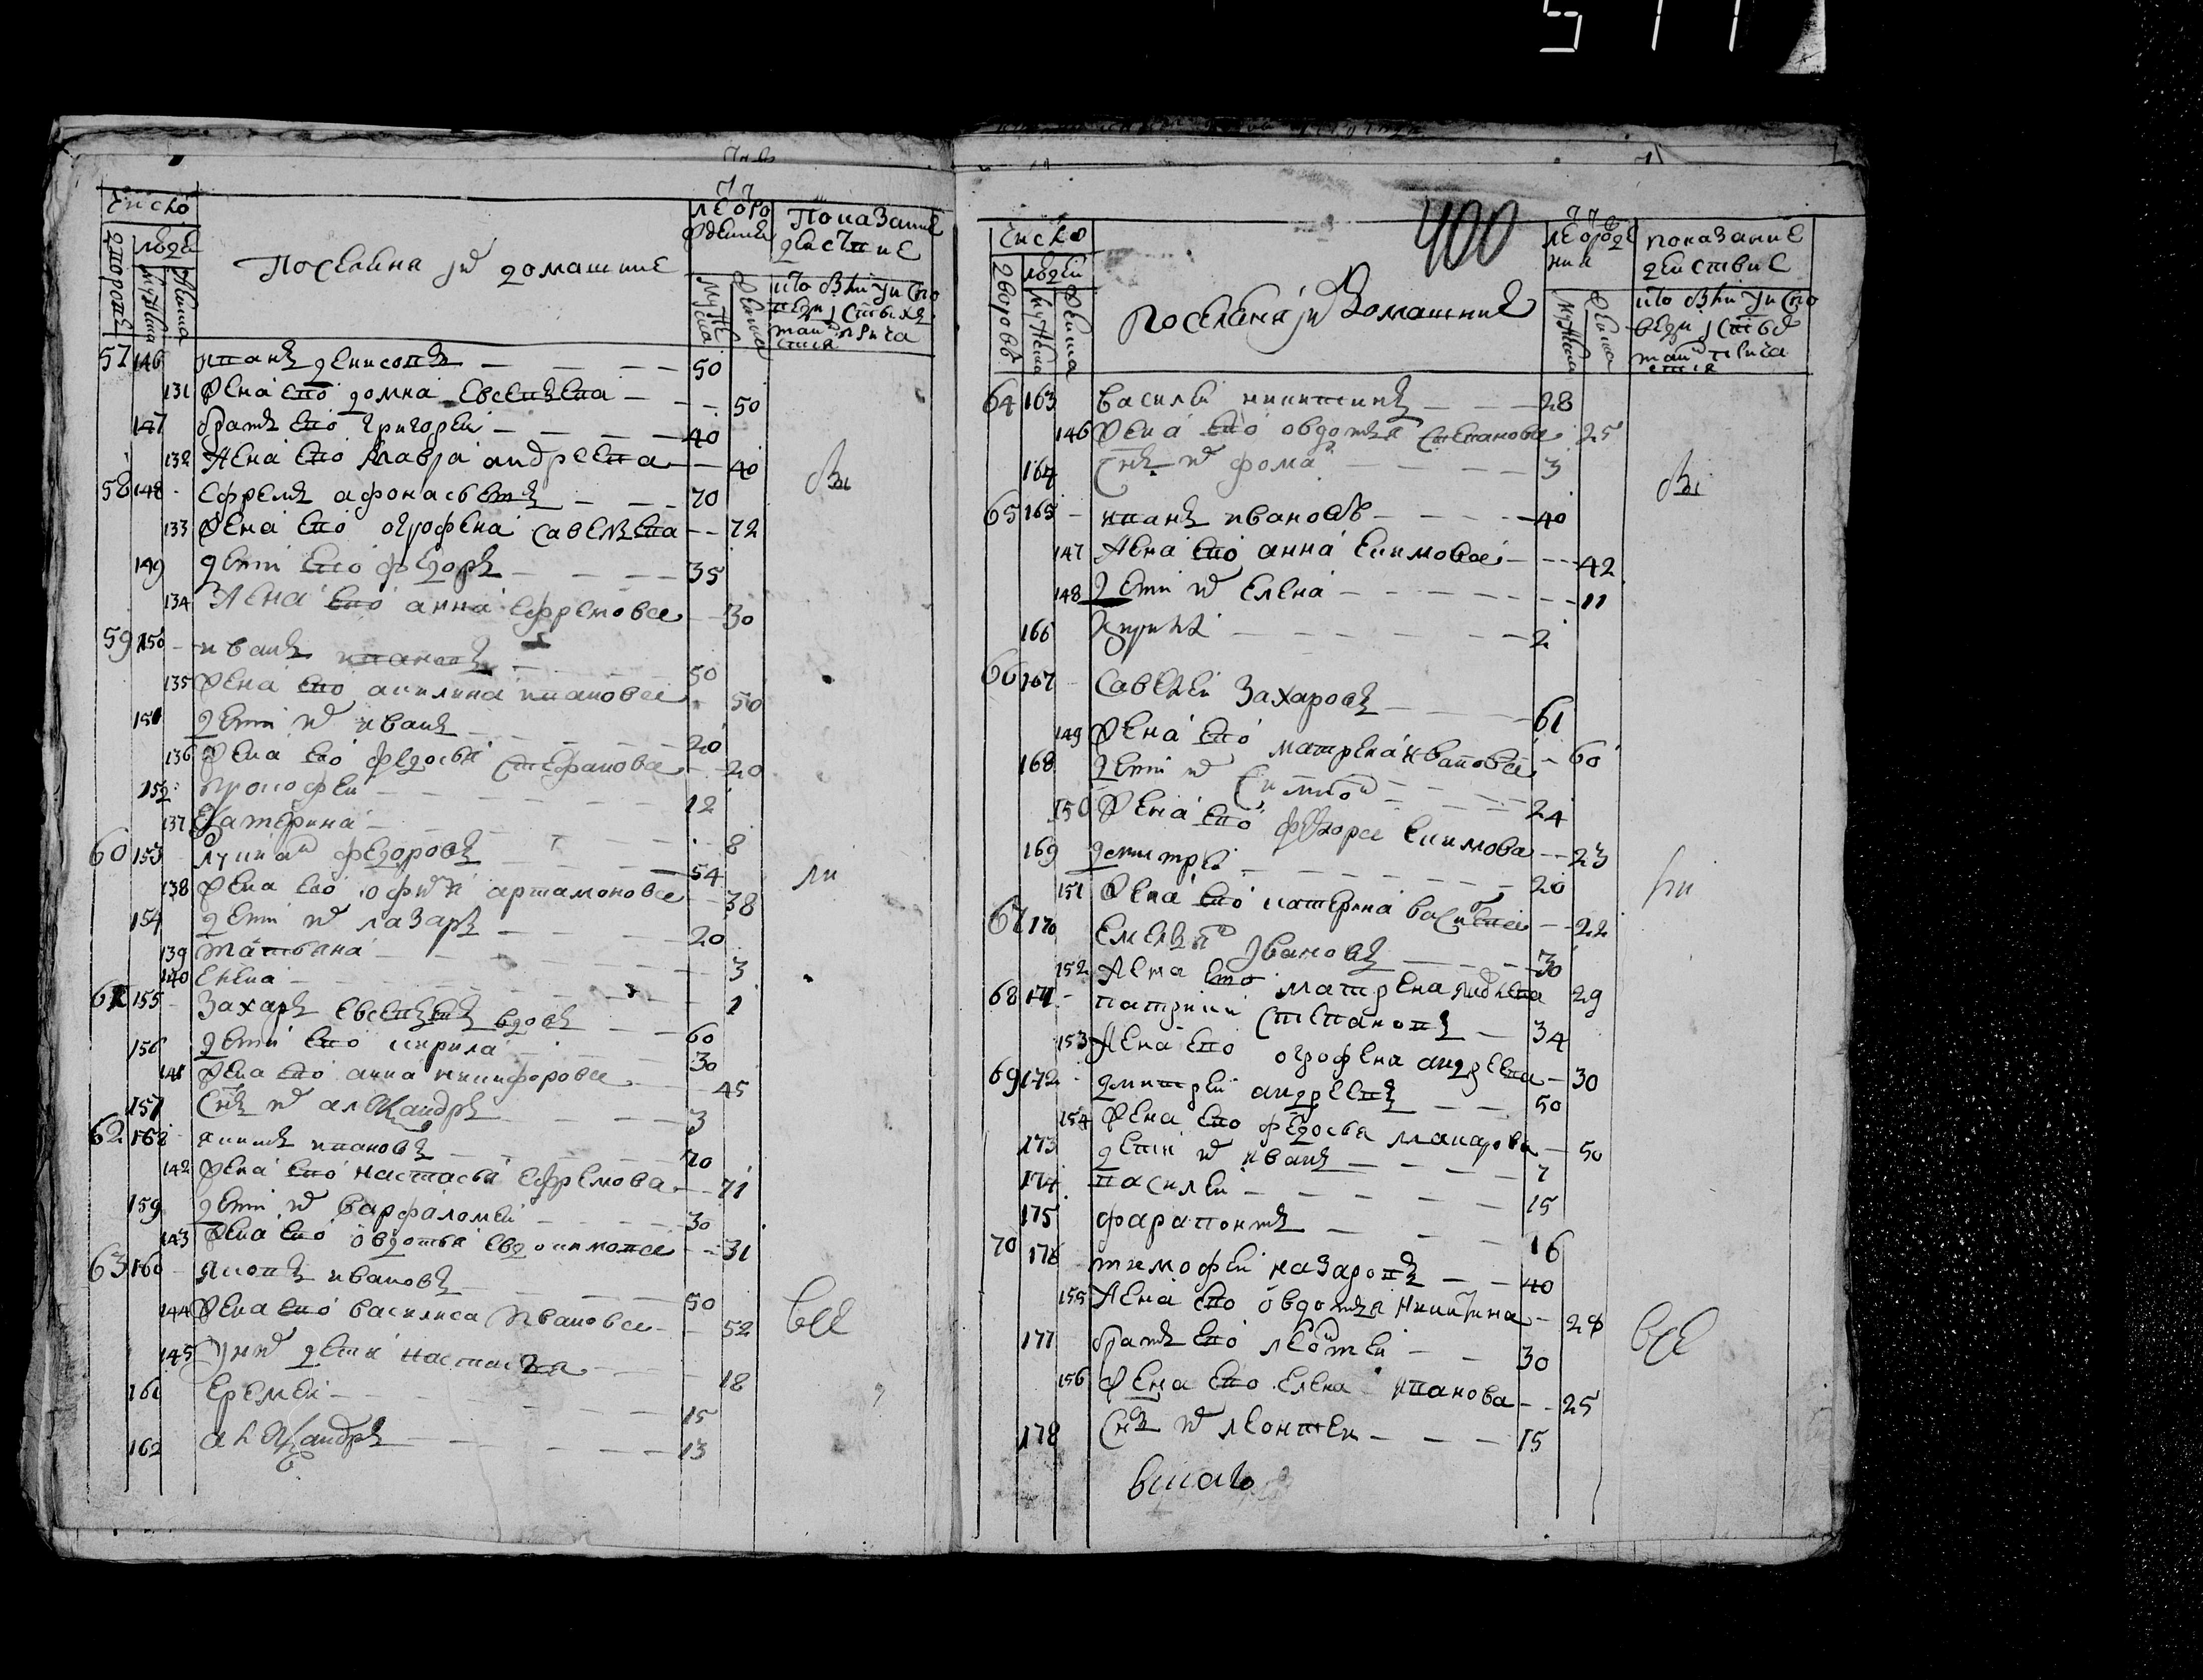 577
число
дворовъ
людей
мужска
женска
Поселяня ихъ домашние
лѣ рождения
Показание действие
мужска
женска
кто были у исповеди и свтыхъ таинъ причастия
57 146 иванъ денисовъ 50
131 жена ево домна евсевьева 50
147 братъ ево григорей 40
132 жена ево мавра андреева 40
58 148 ефремъ афонасьевъ 70
133 жена ево огрофена савельева 72
149 дети ево федоръ 35
134 жена ево анна ефремова 30
59 150 иванъ ивановъ 50
135 жена ево акилина ивановва 50
151 дети их иванъ 20
136 жена ево федосья стефанова 20
152 прокофей 12
137 катерина 8
60 153 лукиан федоровъ 54
138 жена ево софия артамонова 38
154 дети их лазарь 20
139 татьяна 3
140 елена 1
61 155 захаръ евсевьевъ вдовъ 60
156 дети ево кирила 30
141 жена ево анна никифорова 45
157 снъ их александръ 3
62 158 якимъ ивановъ 70
142 жена ево настасья ефремова 71
159 дети их варфаломей 30
143 жена ево овдотья евдокимова 31
63 160 яковъ ивановъ 50
144 жена ево василиса ивановва 52
145 у них дети настасья 18
161 еремей 15
162 александръ 13
бы
ли
все
400
число
дворовъ
людей
мужска
женска
поселяня их домашние
лѣ рождения
показание действие
мужска
женска
кто были у исповеди и свтых таинъ причастия
64 163 василей никитинъ 28
146 жена ево овдотья степанова 25
164 снъ их фома 3
65 165 иванъ ивановъ 40
147 жена ево анна екимова 42
148 дети их елена 11
166 2
66 167 савелей захаровъ 61
149 жена ево матрена ивановва 60
168 дети их симион 24
150 жена ево федора екимова 23
169 демитрей 20
151 жена ево катерина василева 22
67 170 емельян ивановъ 30
152 жена ево матрена 29
68 171 патрикий степановъ 34
153 жена ево огрофена андреева 30
69 172 дмитрей андреевъ 50
154 жена ево федосья макарова 50
173 дети их иванъ 7
174 василей 15
175 фарапонтъ 16
70 176 тимофей назаровъ 40
155 жена ево овдотья никитина 28
177 братъ ево леонтей 30
156 жена ево елена иванова 25
178 снъ их леонтей 15
бы
ли
все